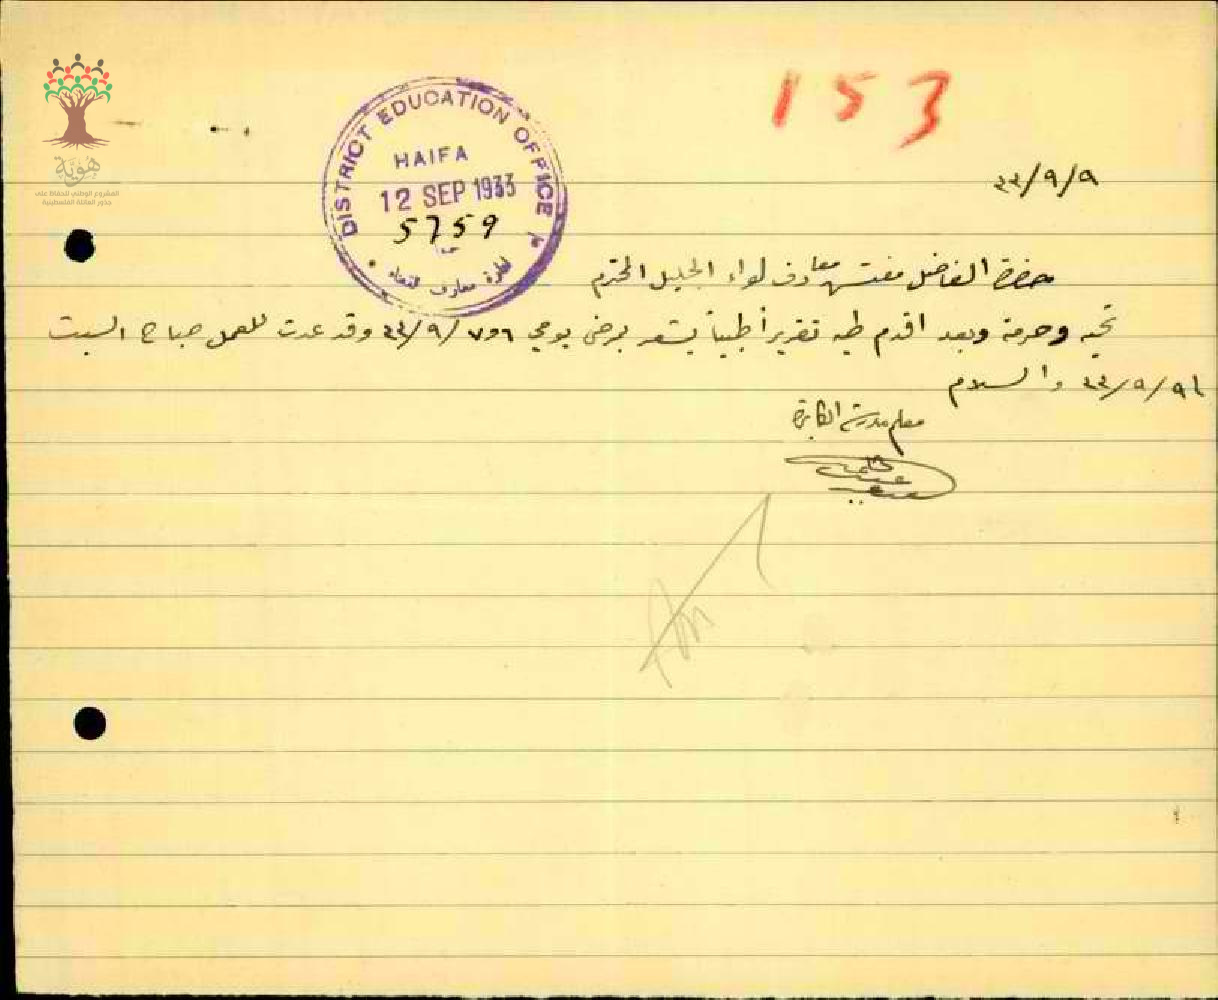 153
هوية
المشروع الوطني للحفاظ على
جذور العائلة الفلسطينية
DISTRICT EDUCATION OFFICE
HAIFA
12 SEP 1933
5759
٣٣/٩/٩
حضرة الفاضل مفتش معارف لواء الجليل المحترم
تحية وحرمة وبعد اقدم طيه تقريراً طبياً يشعر بمرض يومي ٦و٧/٩/٣٣ وقد عدت للعمل صباح السبت
٣٣/٩/٩ والسلام
معلم مدرسة